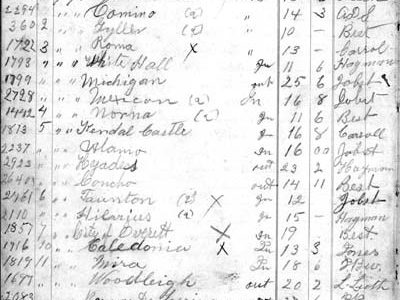 2194 " " Comino (a) " 14 3 
360 2 " " Tyller (a) " 10 - Best
1722 3 " " Roma X " 13 - Carrol
1793 " " White Hall In 11 6 Hagman
1799 " " Michigan out 25 6 Jobst
2728 " " Mexican (a) In 16 8 Jobst
1442 4 " " Norna (a) In 11 6 Best
1813 5 " " Kendal Castle In 16 8 Carroll
2237 " " Alamo In 16 00 Jobst
2923 " " Hyades out 23 2 Hagman
2640 " " Concho out 14 11 Best
2161 6 " " Taunton (a) X In 12 Jobst
2110 " " Hilarius (a) In 15 - Hagman
1857 7 " " City of Everett X In 19 Best
1916 10 " " Caledonia X In 13 3 Jones
1819 11 " " Mira In 18 6
1677 " " Woodleigh out 20 2
2083